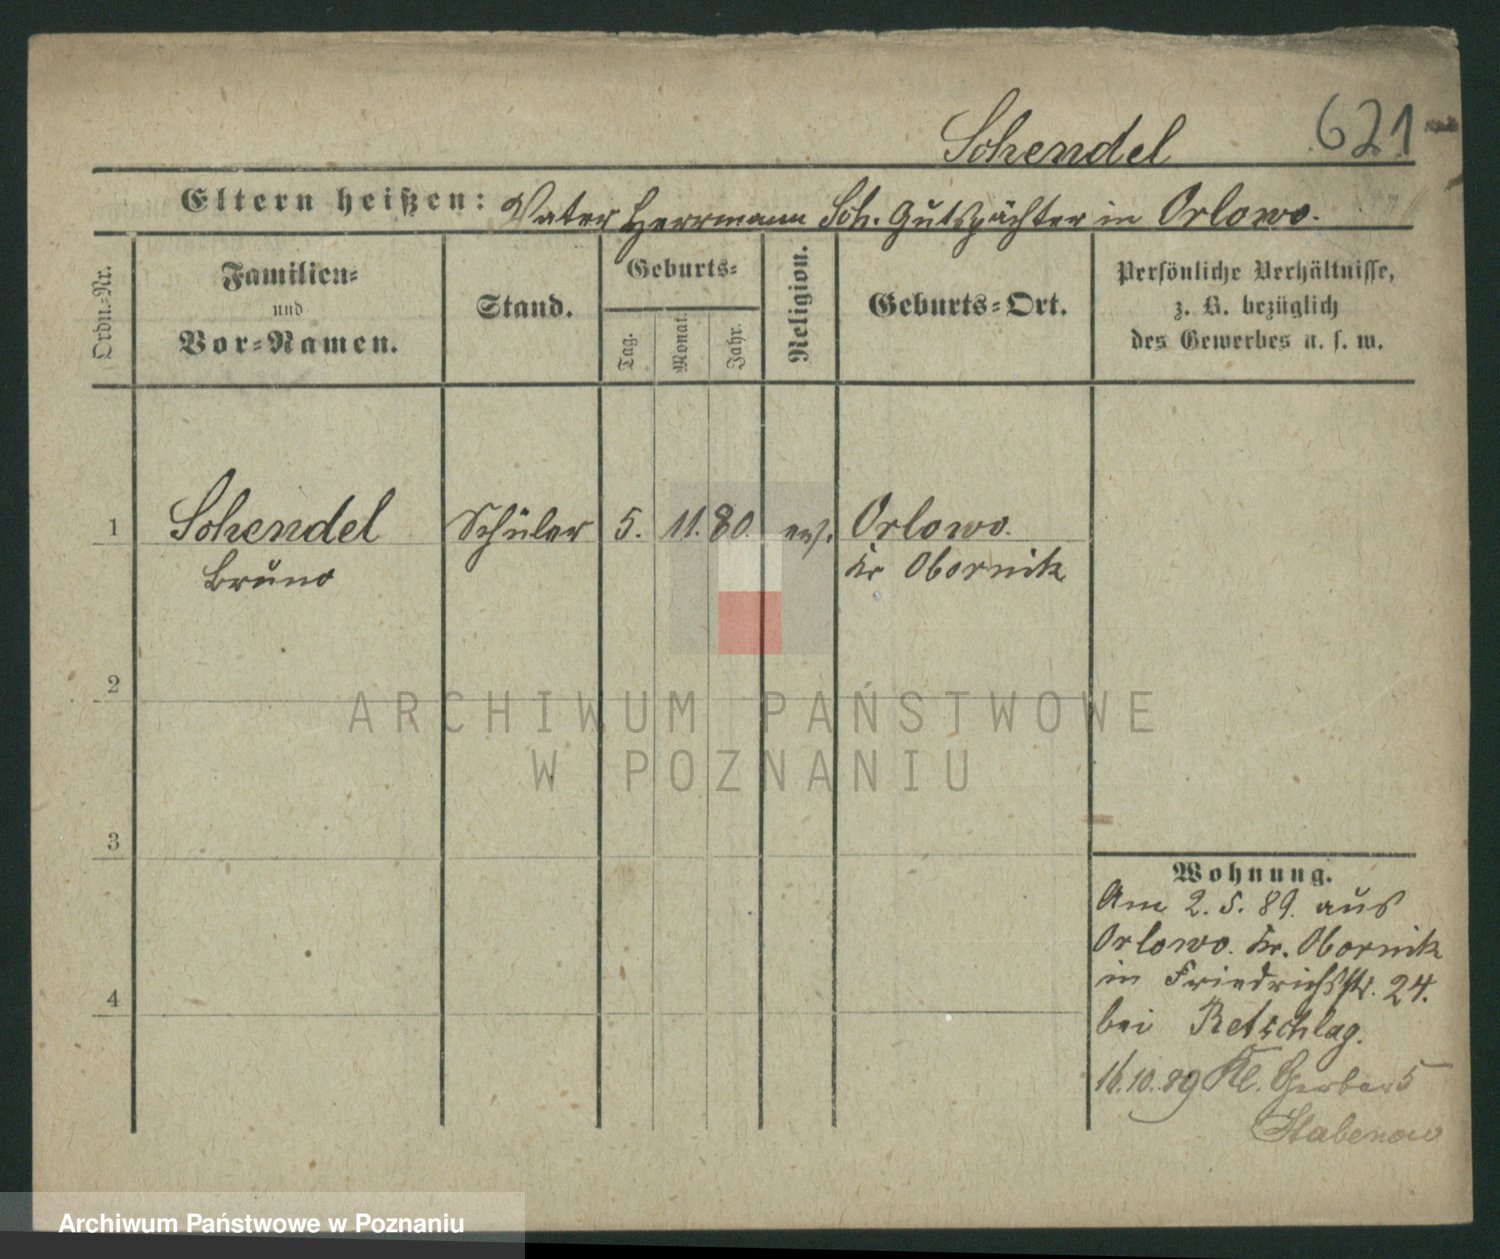 Schendel 621
Eltern heißen: Vater Herrmann Sch. Gutspächter in Orlowo.
Ordn.-Nr.
Familien-
und
Vor-Namen.
Stand.
Geburts-
Tag.
Monat.
Jahr.
Religion.
Geburts-Ort.
Persönliche Verhältnisse,
z. B. bezüglich
des Gewerbes u. s. w.
1 Schendel Schüler 5. 11. 80. ev. Orlowo.
Bruno Kr Obornik
2
3
4
Wohnung.
Am 2. 5. 89. aus
Orlowo. Kr. Obornik
in Friedrichsstr. 24.
bei Retschlag.
16.10.89 Kl. Gerber 5
Stabenow
ARCHIWUM PAŃSTWOWE
W POZNANIU
Archiwum Państwowe w Poznaniu